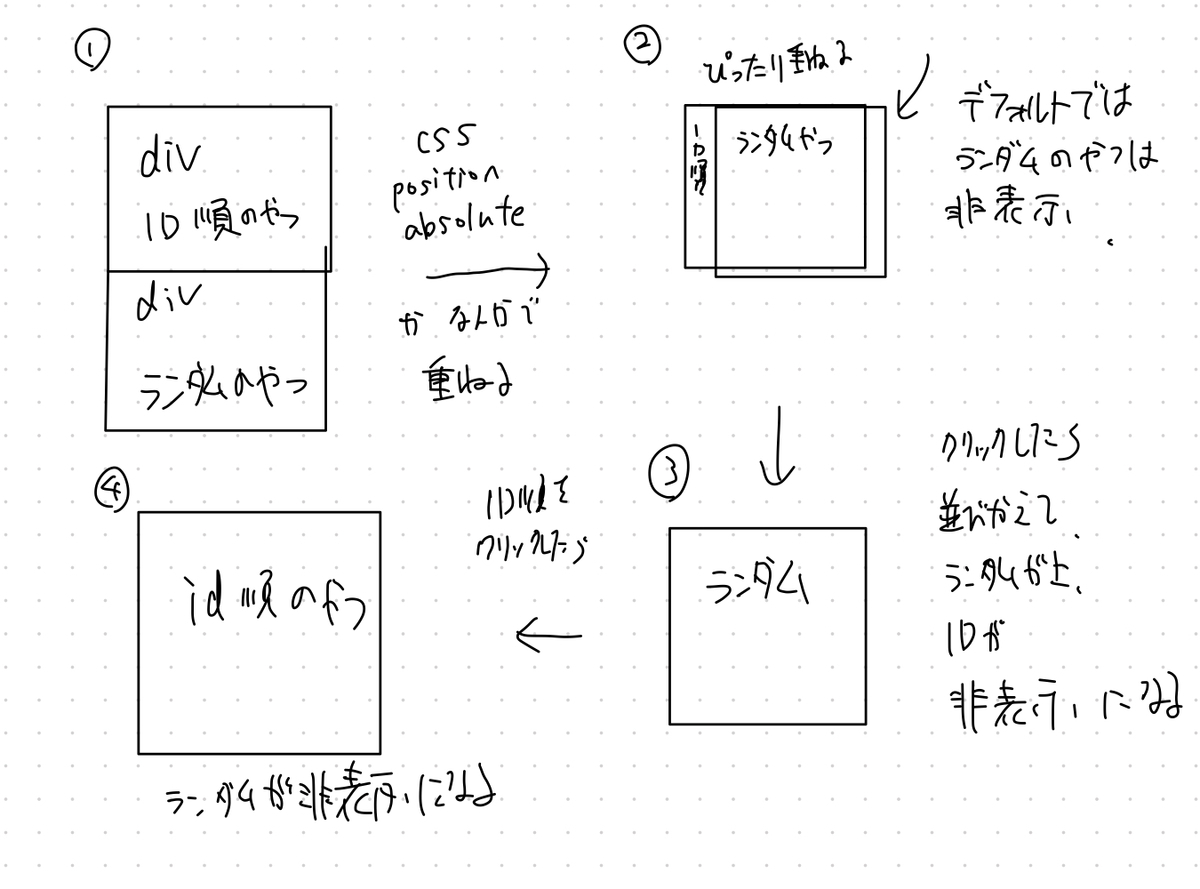 ①
div
ID順のやつ
div
ランダムのやつ
css
position
absolute
かなんかで
重ねる
②
ぴったり重ねる
ID順
ランダムやつ
デフォルトでは
ランダムのやつは
非表示、
③
ランダム
クリックしたら
並びかえて、
ランダムが上、
IDが
非表示になる
ID順を
クリックしたら
④
id順のやつ
ランダムが非表示になる